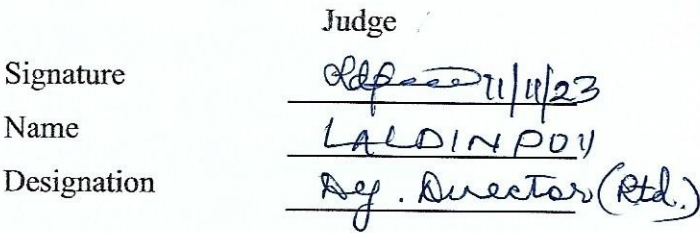 Judge
Signature 11/11/23
Name LALDINPUII
Designation Dy. Director (Rtd.)